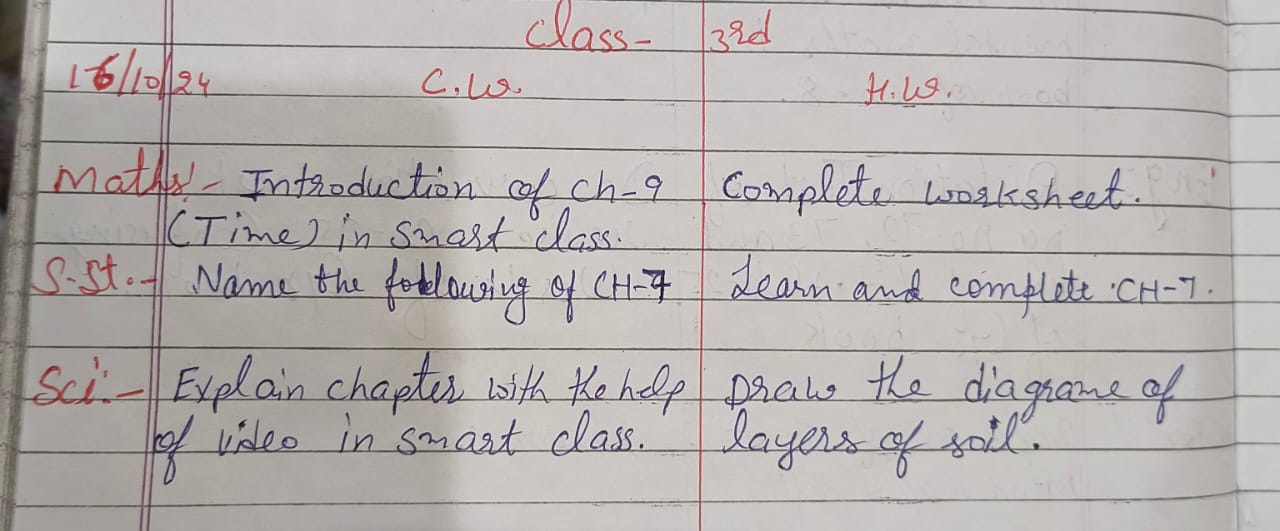 Class- 3rd
16/10/24 C.W. H.W.
Maths:- Introduction of Ch-9 Complete worksheet.
(Time) in smart class.
S.St.:- Name the following of CH-7 Learn and complete CH-7.
Sci:- Explain chapter with the help Draw the diagrame of
of video in smart class. layers of soil.